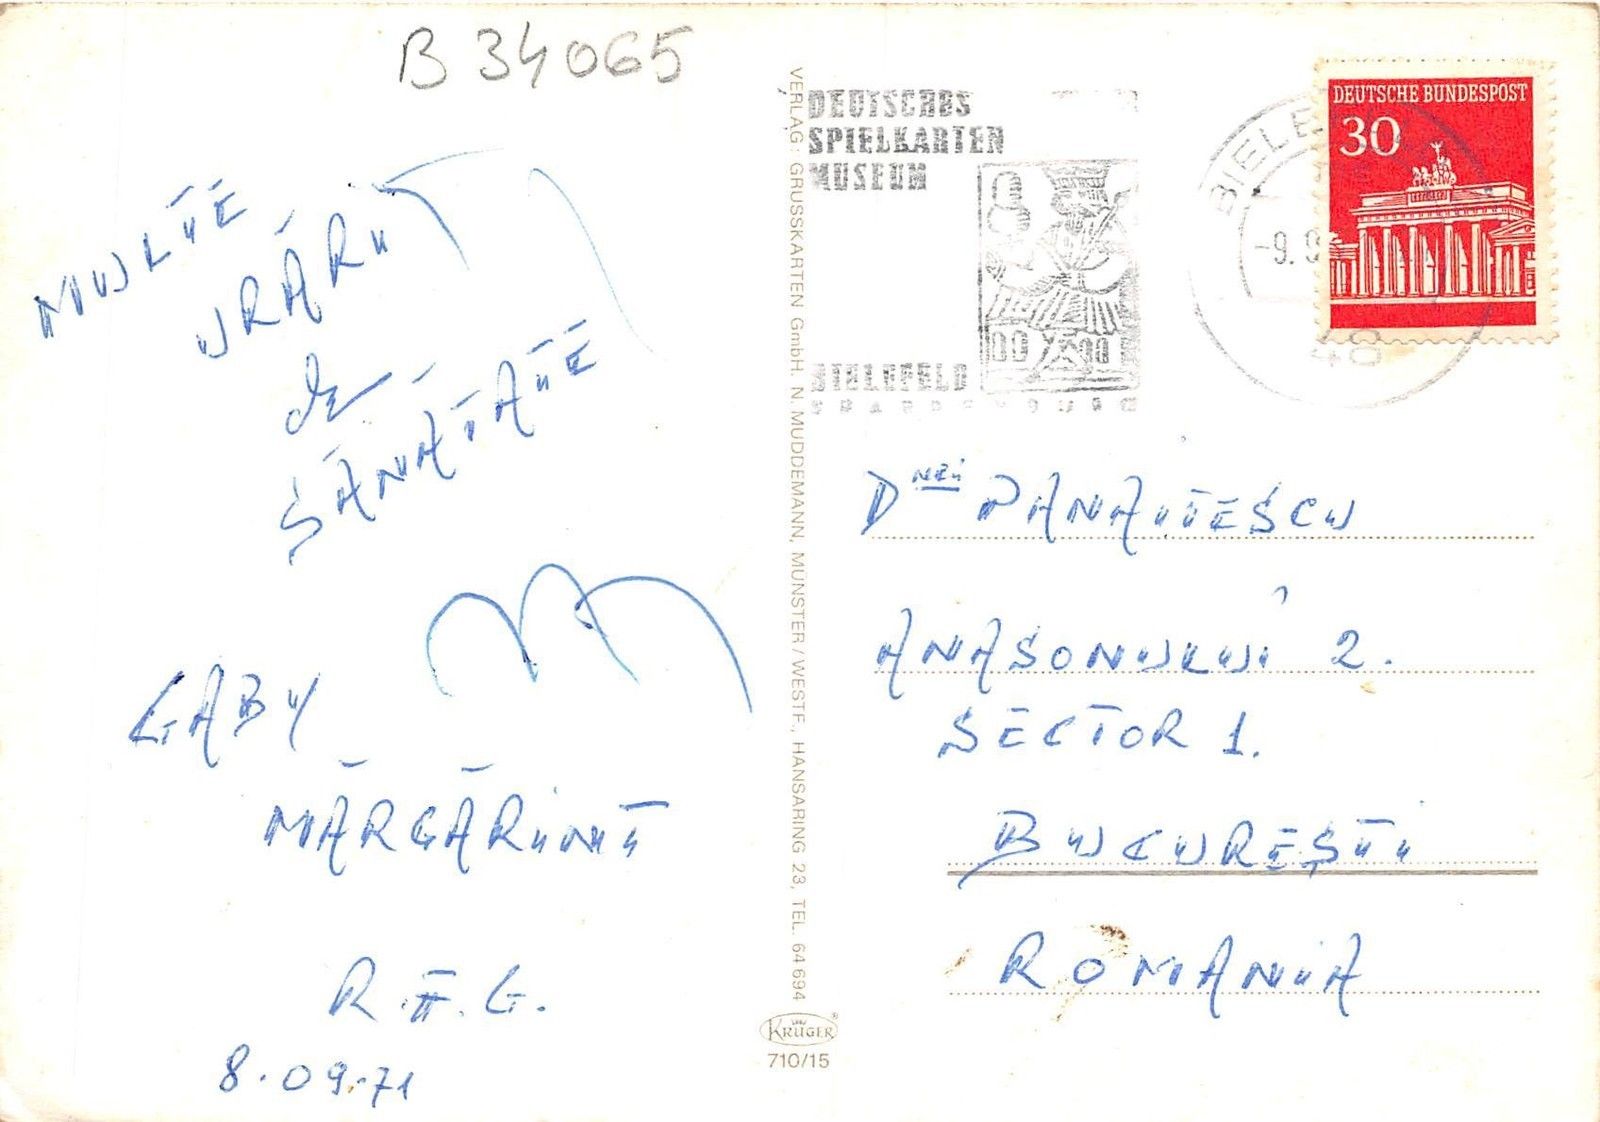 B 34065
MULTE
URĂRI
de
SĂNĂTATE
GABY
MĂRGĂRINT
R.F.G.
8.09.71
VERLAG: GRUSSKARTEN GmbH. N. MUDDEMANN, MUNSTER/WESTF., HANSARING 23, TEL. 64 694
KRÜGER
710/15
DEUTSCHES
SPIELKARTEN
MUSEUM
BIELEFELD
BIELE
-9.9
48
DEUTSCHE BUNDESPOST
30
Dnei PANAITESCU
ANASONULUI 2.
SECTOR 1.
BUCUREȘTI
ROMANIA